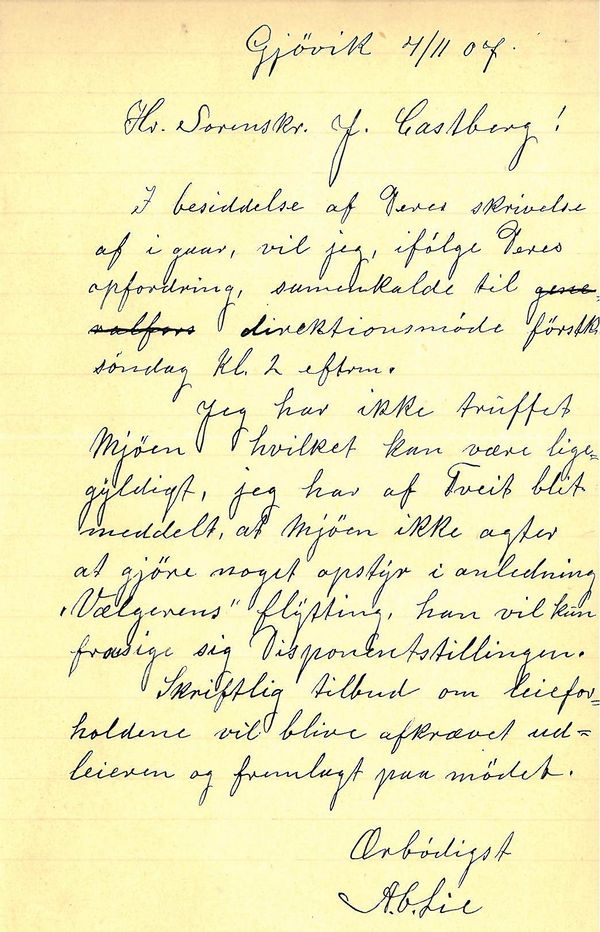 Gjövik 4/11 07.
Hr. Sorenskr. J. Castberg!
I besiddelse af Deres skrivelse
af i gaar, vil jeg, ifölge Deres
opfordring, samenkalde til gene-
ralfors direktionsmöde förstk.
söndag Kl. 2 eftrm.
Jeg har ikke truffet
Mjöen hvilket kan være lige=
gyldigt, jeg har af Tveit blit
meddelt, at Mjöen ikke agter
at gjöre noget opstyr i anledning
"Vælgerens" flytting, han vil kun
frasige sig Disponentstillingen.
Skriftlig tilbud om leiefor-
holdene vil blive afkrævet ud=
leieren og fremlagt paa mödet.
Ærbödigst
A.C. Lie